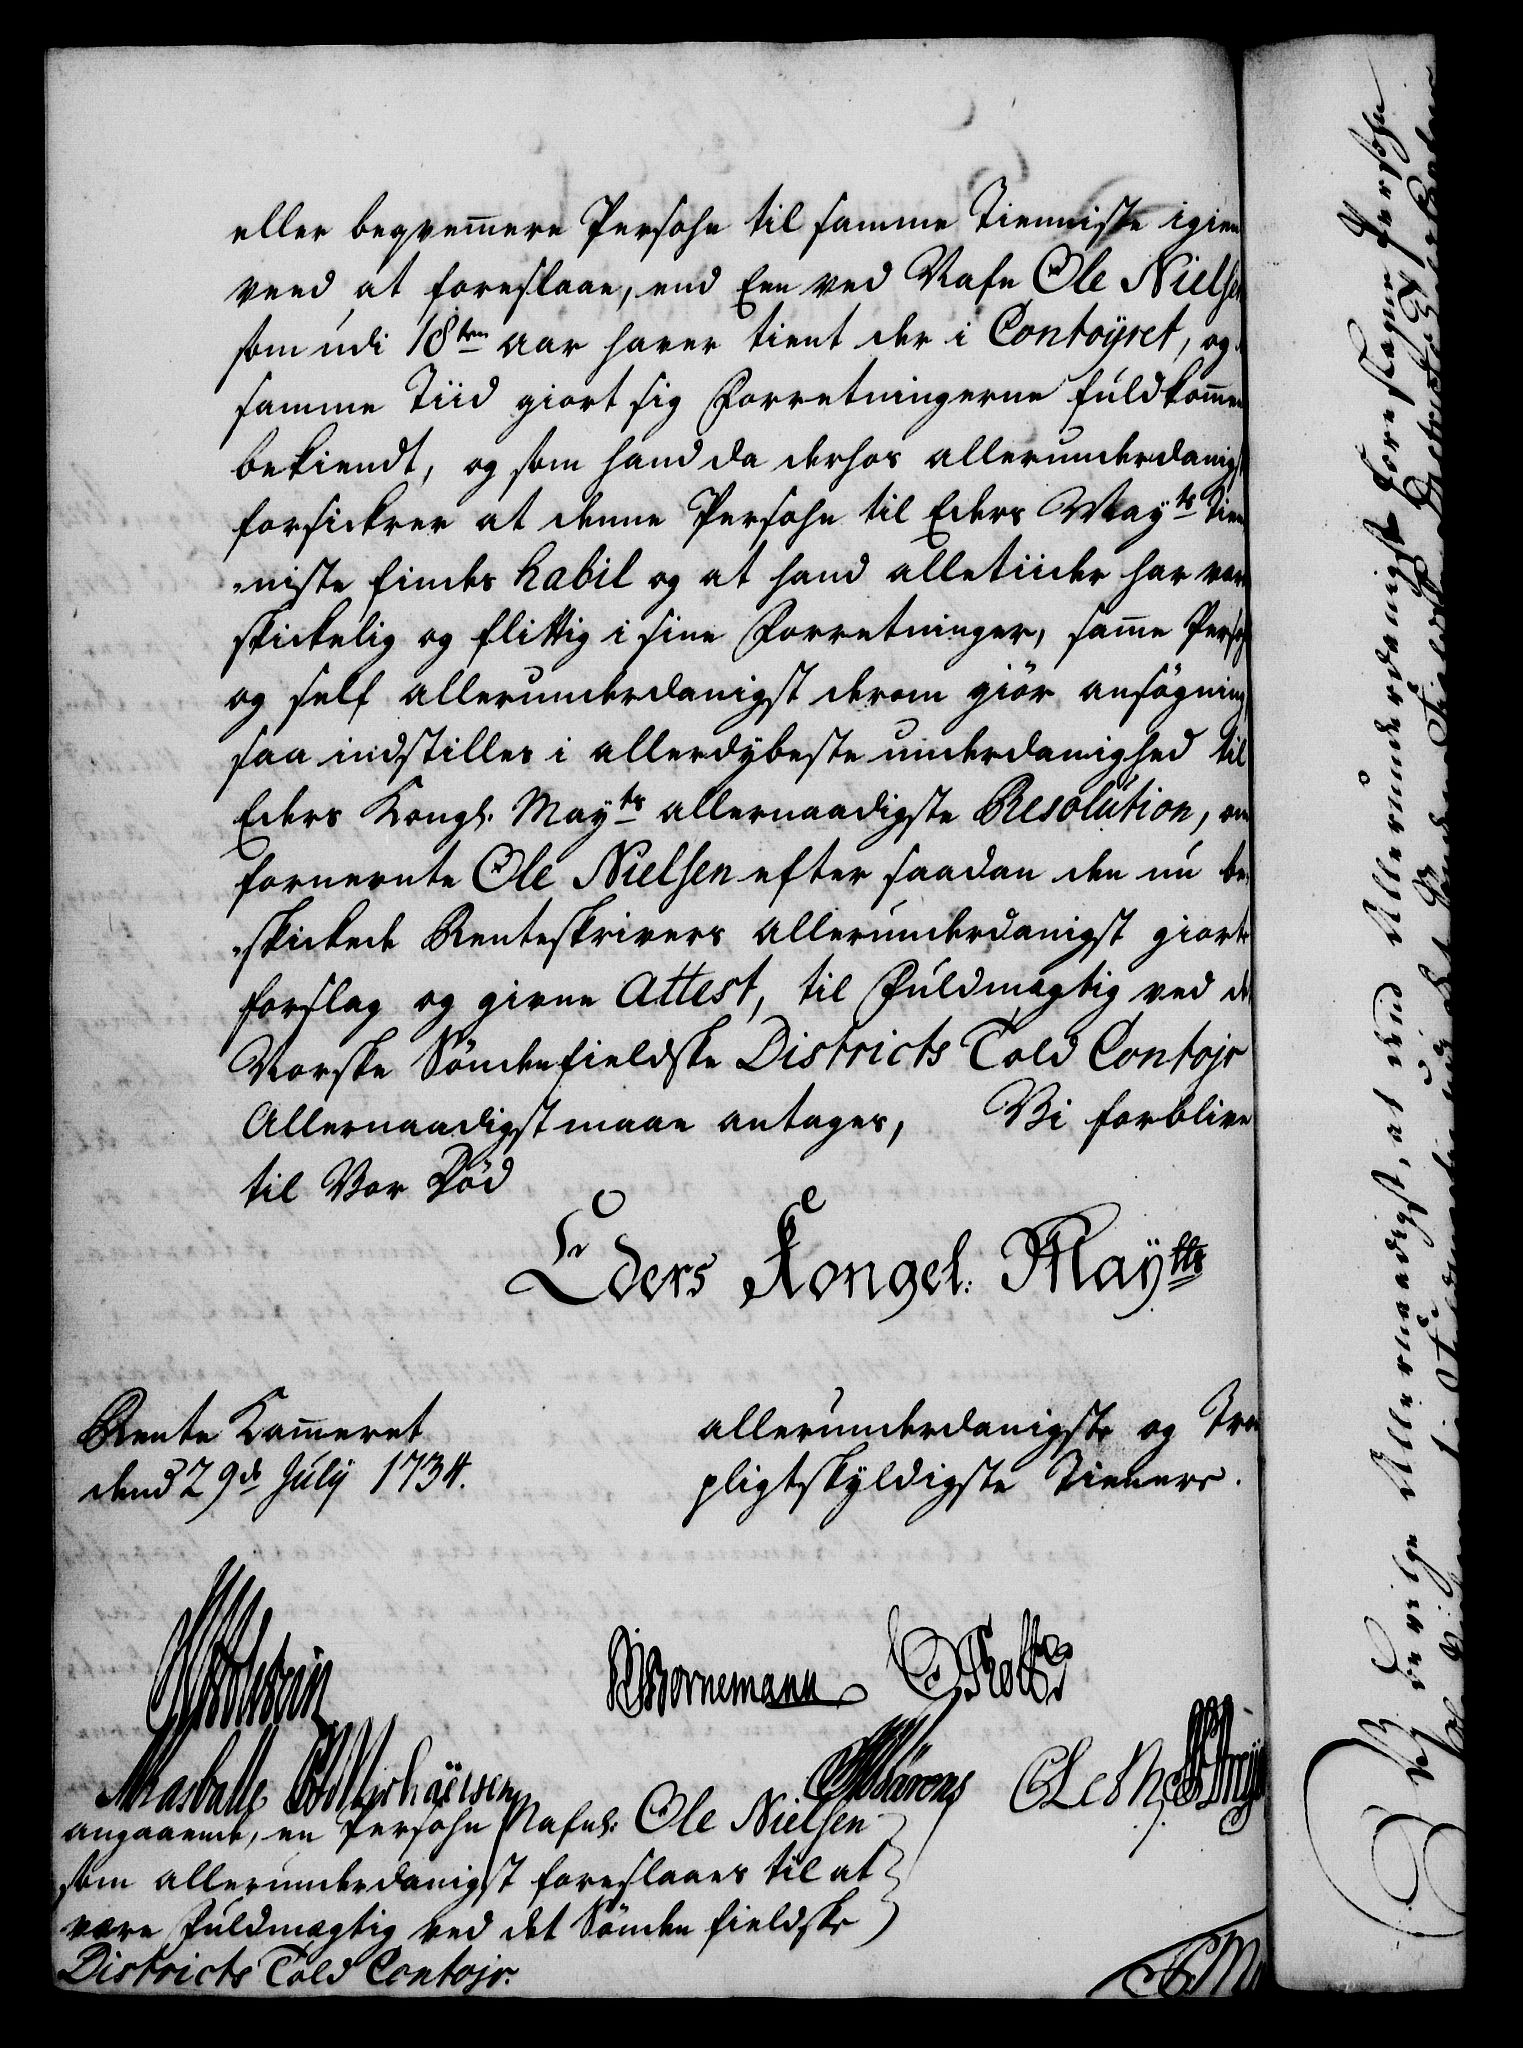 eller beqvemmere Persohn til samme Tienniste igien
veed at foreslaae, end Een ved Nafn Ole Nielsen
som udi 18ten aar haver tient der i Contoyret, og
samme Tiid giort sig Forretningerne fuldkommen
bekiendt, og som hand da derhos allerunderdanigst
forsickrer at denne Persohn til Eders Mayts Tien
-niste findes habil og at hand alletiider har været
skickelig og flittig i sine Forretninger, samme Persohn
og self allerunderdanigst derom giør ansøgning,
saa indstilles i allerdybeste underdanighed til
Eders Kongl. Mayts allernaadigste Resolution, om
fornevnte Ole Nielsen efter saadan den nu be-
-skickede Renteskrivers allerunderdanigst giorte
forslag og givne Attest, til Fuldmægtig ved det
Norske Søndenfieldske Districts Told Contojr
Allernaadigst maae antages, Vi forblive
til Vor Død
Eders Kongel. Maytts
allerunderdanigste og Troe
pligtskyldigste Tienere.
Rente Kammeret
dend 29de July 1734.
Bornemann
angaaende, en Persohn Nafnl. Ole Nielsen
som allerunderdanigst foreslaaes til at
være Fuldmægtig ved det Sønden fieldske
Districts Told Contojr.
Vi bevilge Allernaadigst, at den Allerunderdanigst foreslagne Persohn